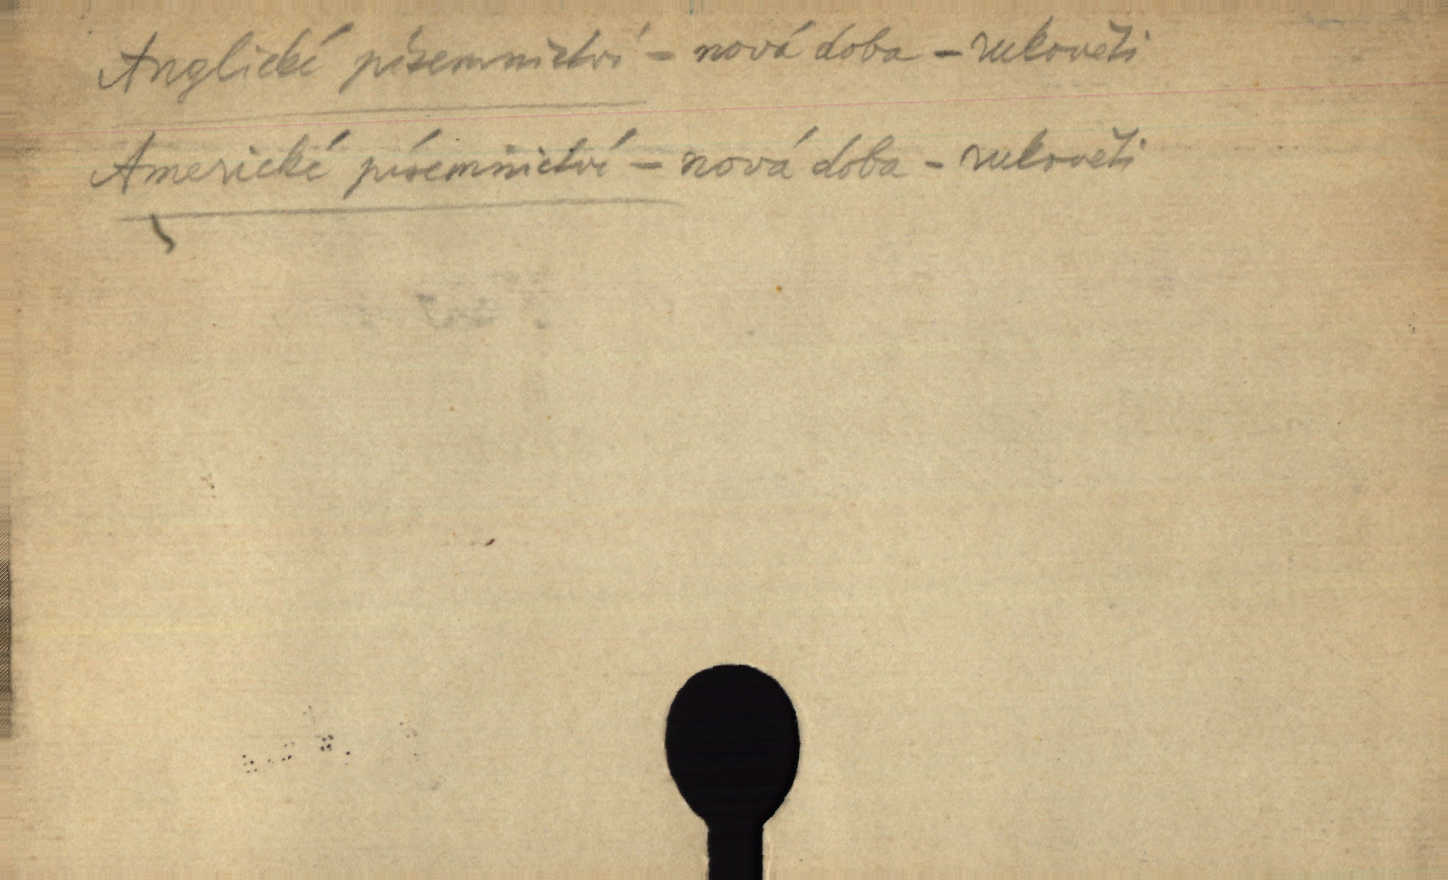 Anglické písemnictví - nová doba - rukověti
Americké písemnictví - nová doba - rukověti